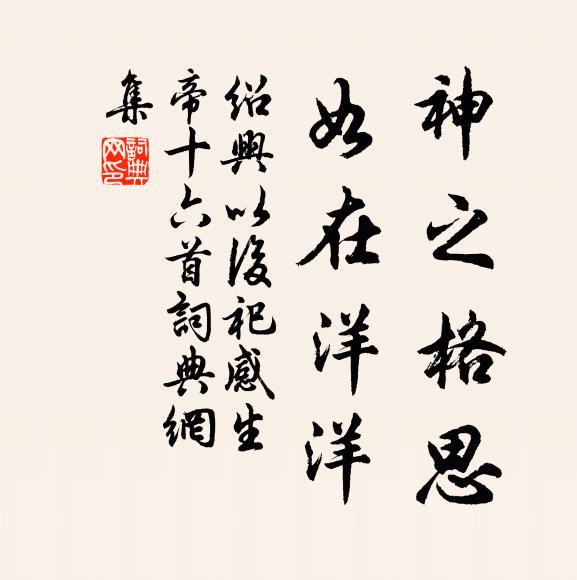 神之格思
如在洋洋
紹興以後祀感生
帝十六首詞典網
集
詞典
网印